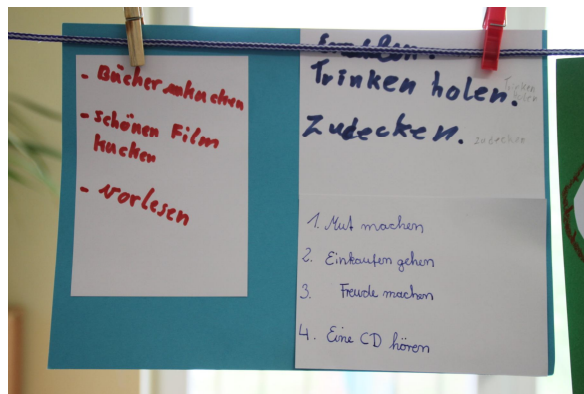 - Bücher ankucken
- schönen Film
kucken
- vorlesen
Trinken holen.
Trinken
holen
Zudecken.
zudecken
1. Mut machen
2. Einkaufen gehen
3. Freude machen
4. Eine CD hören